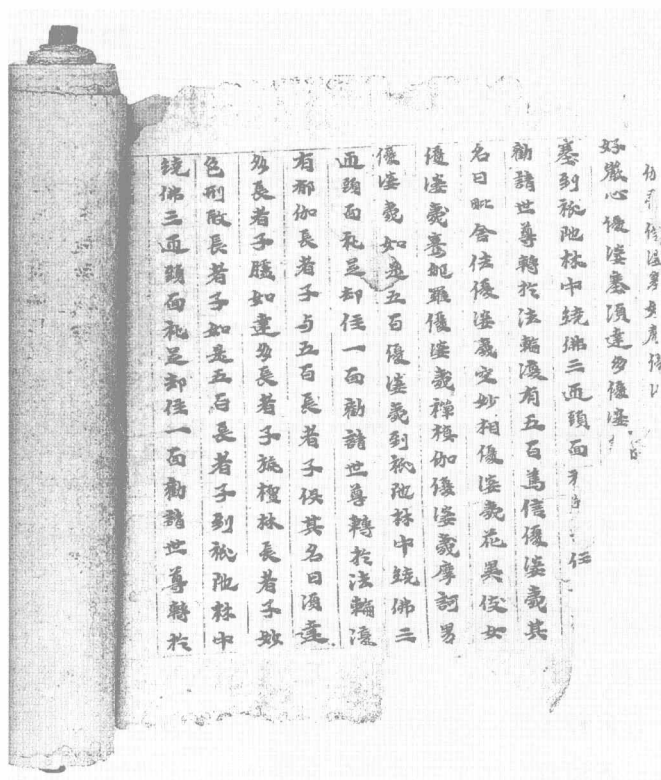 好嚴心優婆塞須達多優婆
塞到祇陁林中繞佛三迊頭面住
勸請世尊轉於法輪復有五百篤信優婆羲其
名曰毗舍佉優婆羲安妙相優婆羲花異佞女
優婆羲優婆羲禪伽優婆羲摩訶男
優婆羲如是五百優婆羲到祇陁林中繞佛三
迊頭面礼足却住一面勸請世尊轉於法輪復
有郁伽長者子与五百長者子俱其名曰須達
多長者子勝如達多長者子旃檀林長者子妙
色形長者子如是五百長者子到祇陁林中
繞佛三迊頭面礼足却住一面勸請世尊轉於